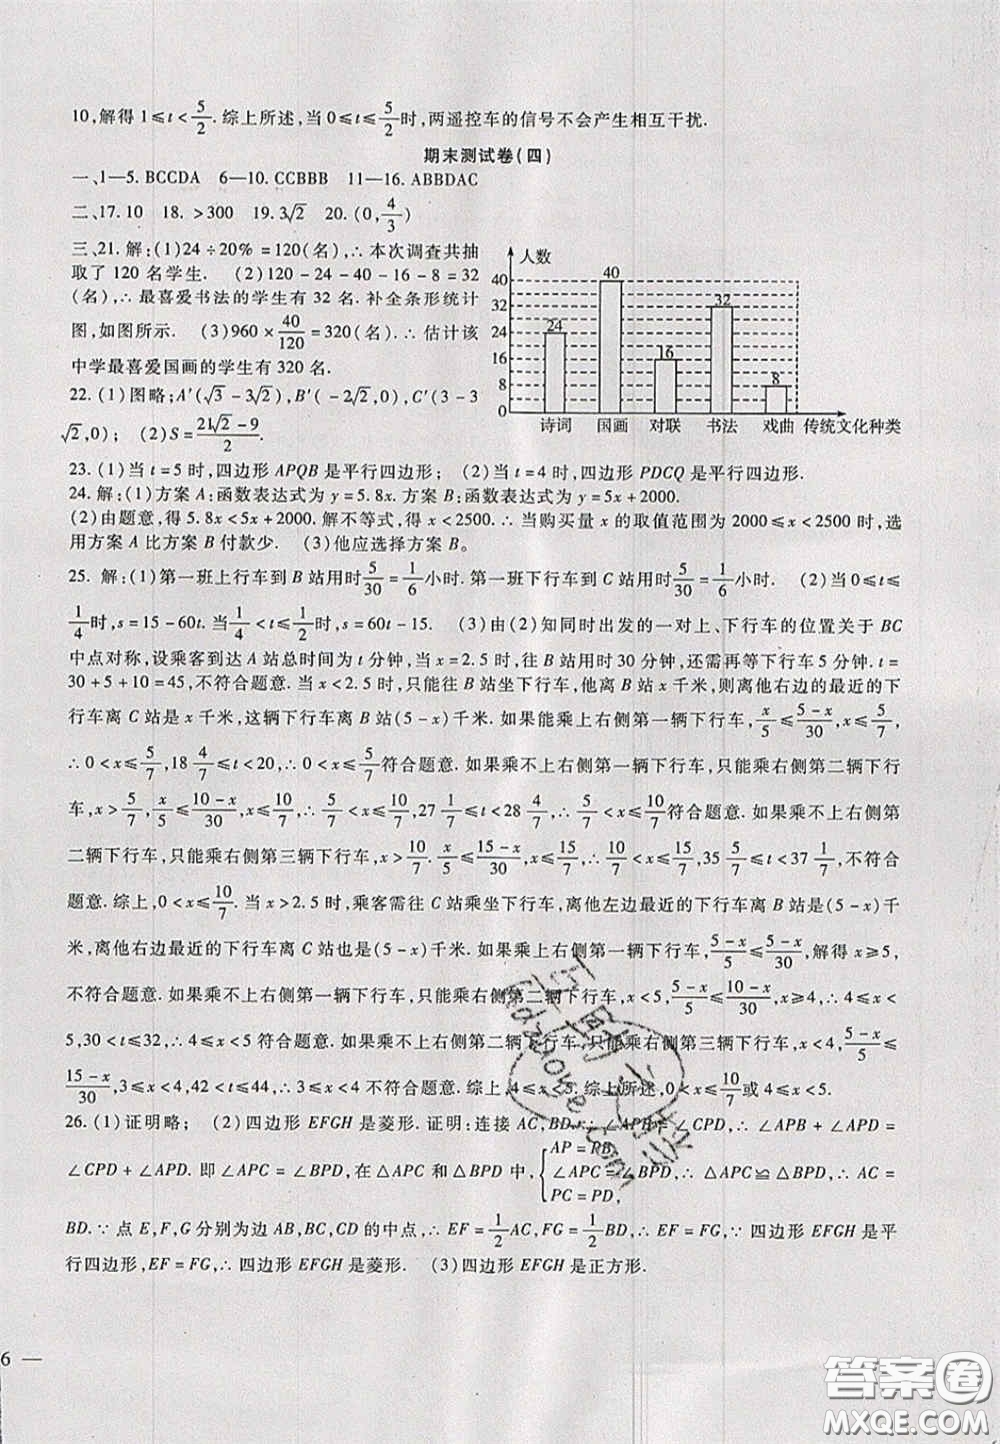 10,解得1≤t<5/2.综上所述,当0≤t≤5/2时,两遥控车的信号不会产生相互干扰.
期末测试卷(四)
一、1—5. BCCDA 6—10. CCBBB 11—16. ABBDAC
二、17. 10 18. >300 19. 3√2 20. (0, 4/3)
三、21. 解:(1)24÷20%=120(名),∴本次调查共抽
取了120名学生. (2)120-24-40-16-8=32
(名),∴最喜爱书法的学生有32名.补全条形统计
图,如图所示. (3)960×40/120=320(名).∴估计该
中学最喜爱国画的学生有320名.
22. (1)图略;A′(√3-3√2),B′(-2√2,0),C′(3-3
√2,0); (2)S=(21√2-9)/2.
人数
40
32
24
16
8
0
24
40
16
32
8
诗词 国画 对联 书法 戏曲 传统文化种类
23. (1)当t=5时,四边形APQB是平行四边形; (2)当t=4时,四边形PDCQ是平行四边形.
24. 解:(1)方案A:函数表达式为y=5.8x.方案B:函数表达式为y=5x+2000.
(2)由题意,得5.8x<5x+2000.解不等式,得x<2500.∴当购买量x的取值范围为2000≤x<2500时,选
用方案A比方案B付款少. (3)他应选择方案B。
25. 解:(1)第一班上行车到B站用时5/30=1/6小时.第一班下行车到C站用时5/30=1/6小时. (2)当0≤t≤
1/4时,s=15-60t.当1/4<t≤1/2时,s=60t-15. (3)由(2)知同时出发的一对上、下行车的位置关于BC
中点对称,设乘客到达A站总时间为t分钟,当x=2.5时,往B站用时30分钟,还需再等下行车5分钟.t=
30+5+10=45,不符合题意.当x<2.5时,只能往B站坐下行车,他离B站x千米,则离他右边的最近的下
行车离C站是x千米,这辆下行车离B站(5-x)千米.如果能乘上右侧第一辆下行车,x/5≤(5-x)/30,x≤5/7,
∴0<x≤5/7,18 4/7≤t<20,∴0<x≤5/7符合题意.如果乘不上右侧第一辆下行车,只能乘右侧第二辆下行
车,x>5/7,x/5≤(10-x)/30,x≤10/7,∴5/7<x≤10/7,27 1/7≤t<28 4/7,∴5/7<x≤10/7符合题意.如果乘不上右侧第
二辆下行车,只能乘右侧第三辆下行车,x>10/7. x/5≤(15-x)/30,x≤15/7,∴10/7<x≤15/7,35 5/7≤t<37 1/7,不符合
题意.综上,0<x≤10/7.当x>2.5时,乘客需往C站乘坐下行车,离他左边最近的下行车离B站是(5-x)千
米,离他右边最近的下行车离C站也是(5-x)千米.如果乘上右侧第一辆下行车,(5-x)/5≤(5-x)/30,解得x≥5,
不符合题意.如果乘不上右侧第一辆下行车,只能乘右侧第二辆下行车,x<5,(5-x)/5≤(10-x)/30,x≥4,∴4≤x<
5,30<t≤32,∴4≤x<5符合题意.如果乘不上右侧第二辆下行车,只能乘右侧第三辆下行车,x<4,(5-x)/5≤
(15-x)/30,3≤x<4,42<t≤44,∴3≤x<4不符合题意.综上,4≤x<5.综上所述,0<x≤10/7或4≤x<5.
26. (1)证明略; (2)四边形EFGH是菱形.证明:连接AC,BD.∵∠APB=∠CPD,∴∠APB+∠APD=
∠CPD+∠APD.即∠APC=∠BPD,在△APC和△BPD中,{AP=PB, ∠APC=∠BPD, PC=PD,∴△APC≌△BPD,∴AC=
BD.∵点E,F,G分别为边AB,BC,CD的中点,∴EF=1/2AC,FG=1/2BD,∴EF=FG,∵四边形EFGH是平
行四边形,EF=FG,∴四边形EFGH是菱形. (3)四边形EFGH是正方形.
6 —
答案圈
MXQE.COM